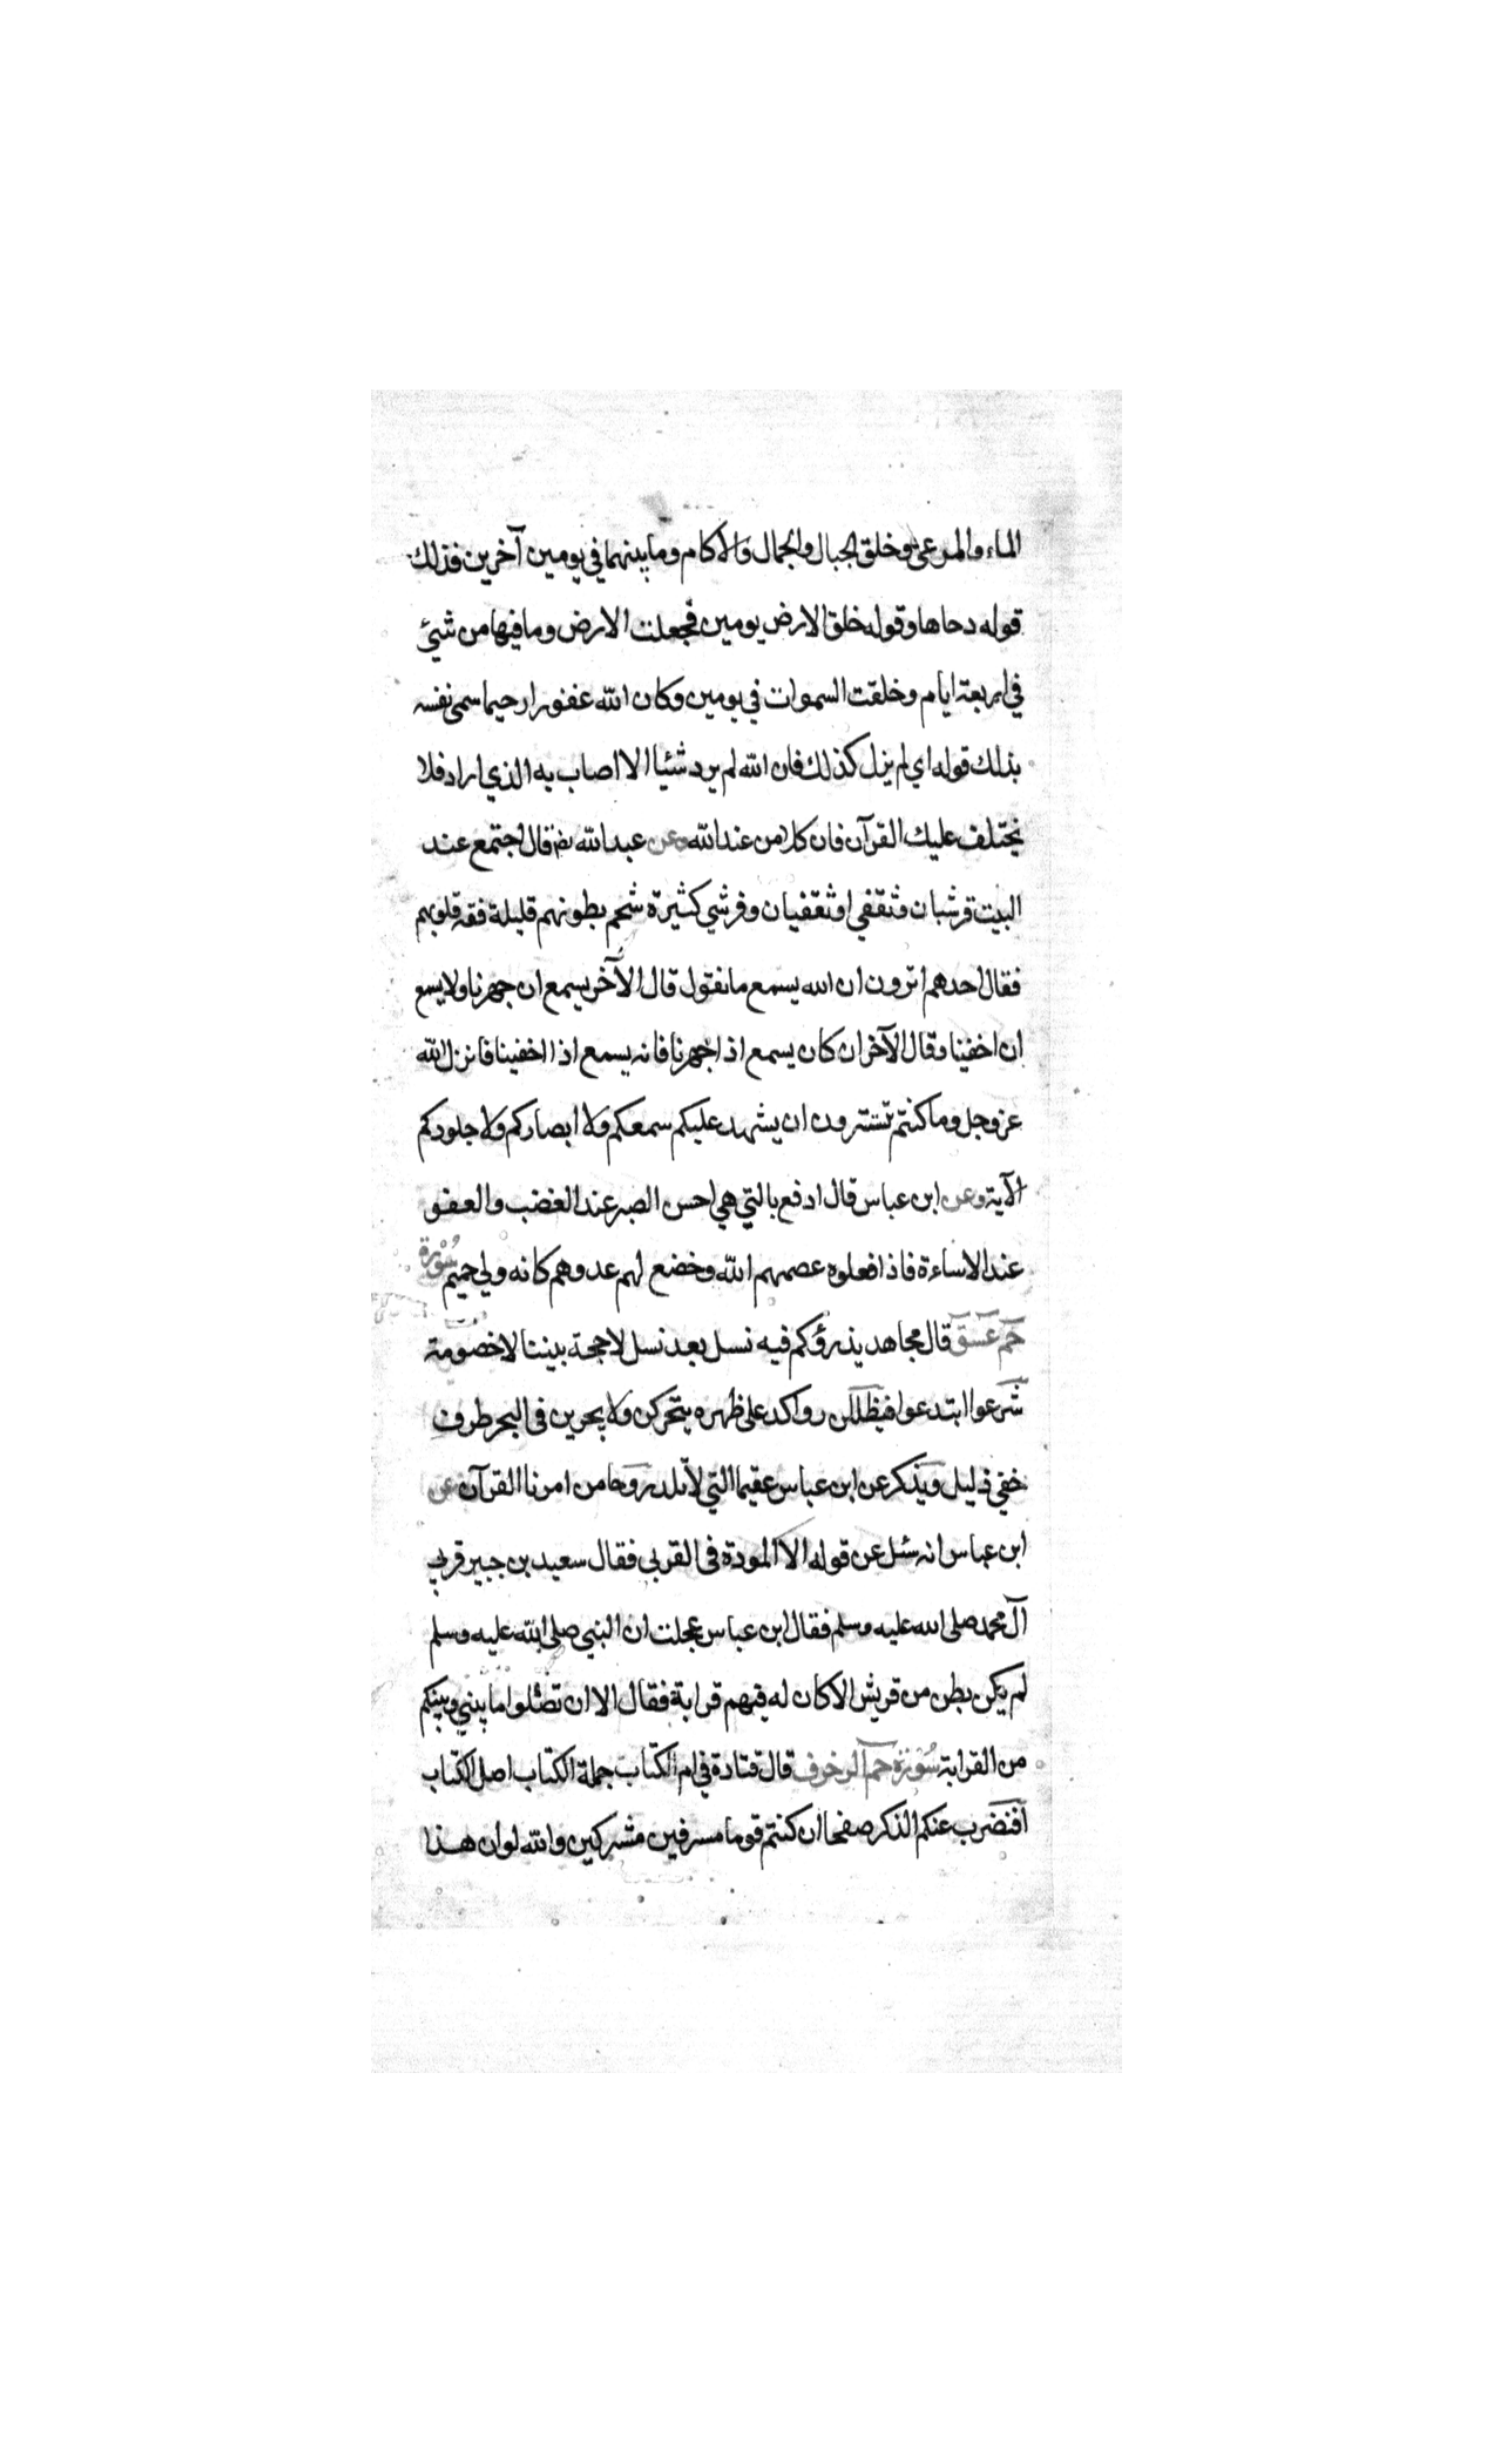 الماء والمرعى وخلق الجبال والجمال والآكام وما بينهما في يومين آخرين فذلك
قوله دحاها وقوله خلق الارض يومين فجعلت الارض وما فيها من شيئ
في اربعة ايام وخلقت السموات في يومين وكان الله غفورا رحيما سمى نفسه
بذلك قوله اي لم يزل كذلك فان الله لم يرد شئيا الا اصاب به الذي اراد فلا
يختلف عليك القرآن فان كلا من عند الله وعن عبد الله قال اجتمع عند
البيت قرشيان وثقفي او ثقفيان وقرشي كثيرة شحم بطونهم قليلة فقه قلوبهم
فقال احدهم اترون ان الله يسمع ما نقول قال الآخر يسمع ان جهرنا ولا يسمع
ان اخفينا وقال الآخر ان كان يسمع اذا جهرنا فانه يسمع اذا اخفينا فانزل الله
عز وجل وما كنتم تستترون ان يشهد عليكم سمعكم ولا ابصاركم ولا جلودكم
الآية وعن ابن عباس قال ادفع بالتي هي احسن الصبر عند الغضب والعفو
عند الاساءة فاذا فعلوه عصمهم الله وخضع لهم عدوهم كانه ولي حميم سورة
حم عسق قال مجاهد يذرؤكم فيه نسل بعد نسل لا حجة بيننا لا خصومة
شرعوا ابتدعوا فيظللن رواكد على ظهره يتحركن ولا يجرين في البحر طرف
خفي ذليل ويذكر عن ابن عباس عقيما التي لا تلد روحا من امرنا القرآن عن
ابن عباس انه سئل عن قوله الا المودة في القربى فقال سعيد بن جبير قربى
آل محمد صلى الله عليه وسلم فقال ابن عباس عجلت ان النبي صلى الله عليه وسلم
لم يكن بطن من قريش الا كان له فيهم قرابة فقال الا ان تصلوا ما بيني وبينكم
من القرابة سورة حم الزخرف قال قتادة في ام الكتاب جملة الكتاب اصل الكتاب
افنضرب عنكم الذكر صفحا ان كنتم قوما مسرفين مشركين والله لو ان هذا